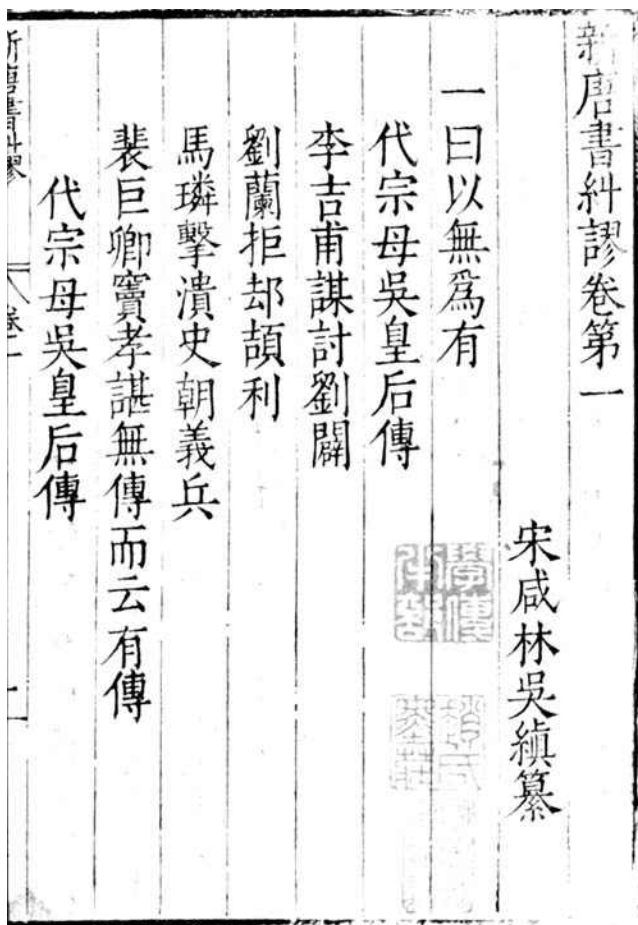 新唐書糾謬卷第一
宋咸林吳縝纂
一曰以無爲有
代宗母吳皇后傳
李吉甫謀討劉闢
劉蘭拒却頡利
馬璘擊潰史朝義兵
裴巨卿竇孝諶無傳而云有傳
代宗母吳皇后傳
新唐書糾謬
卷一